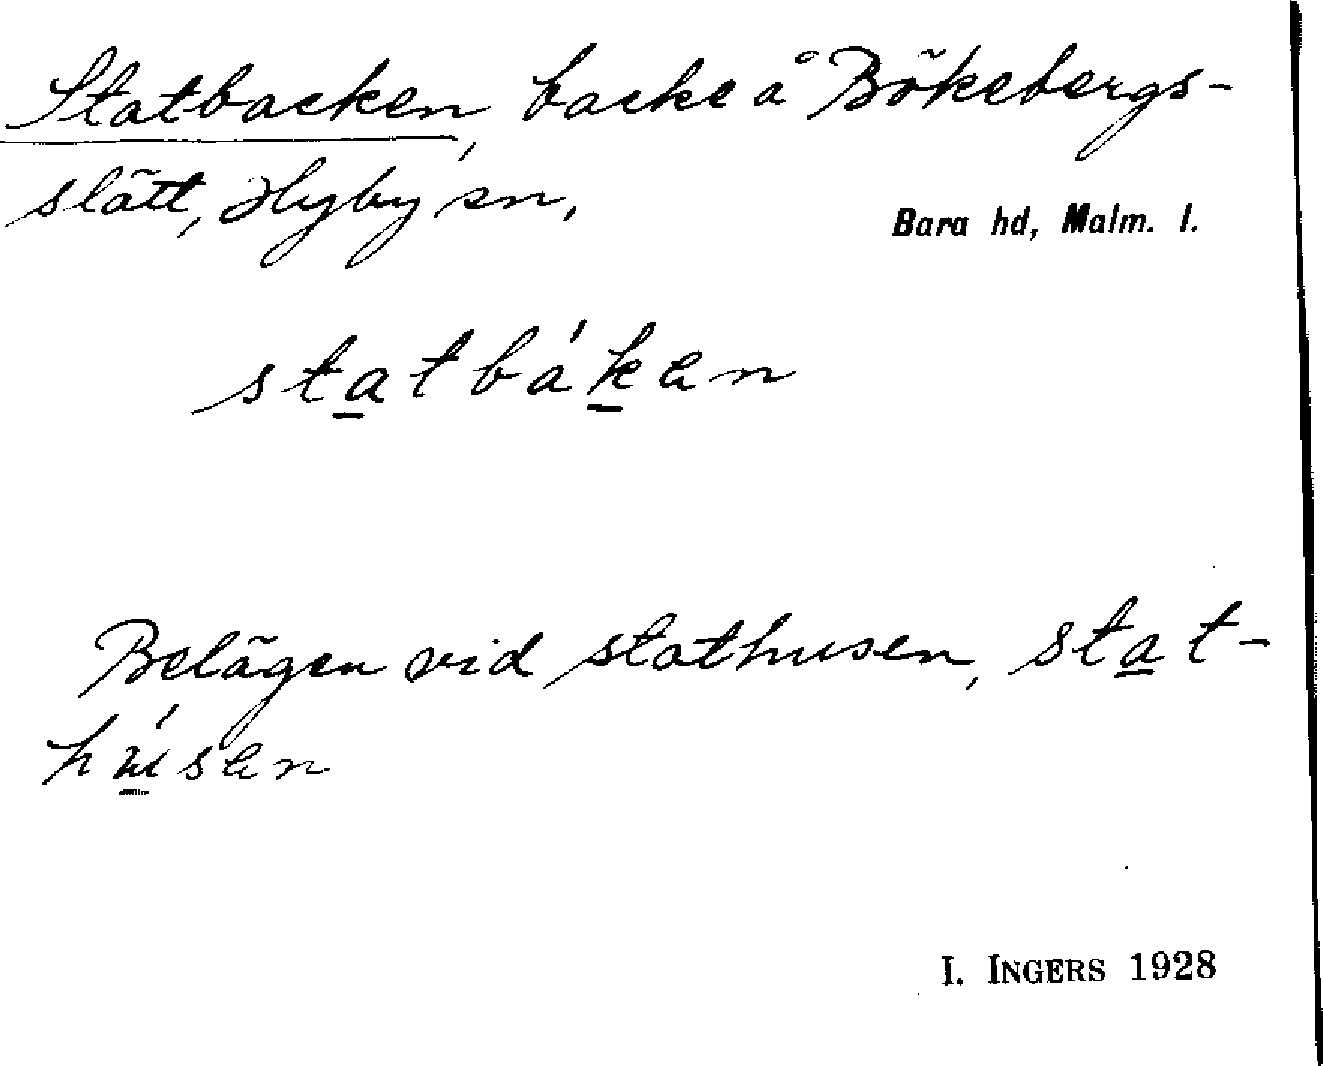 Statbacken, backe å Bökebergs-
slätt, Hyby sn,
Bara hd, Malm. l.
statbákan
Belägen vid stathusen, stat-
húsan
I. INGERS 1928